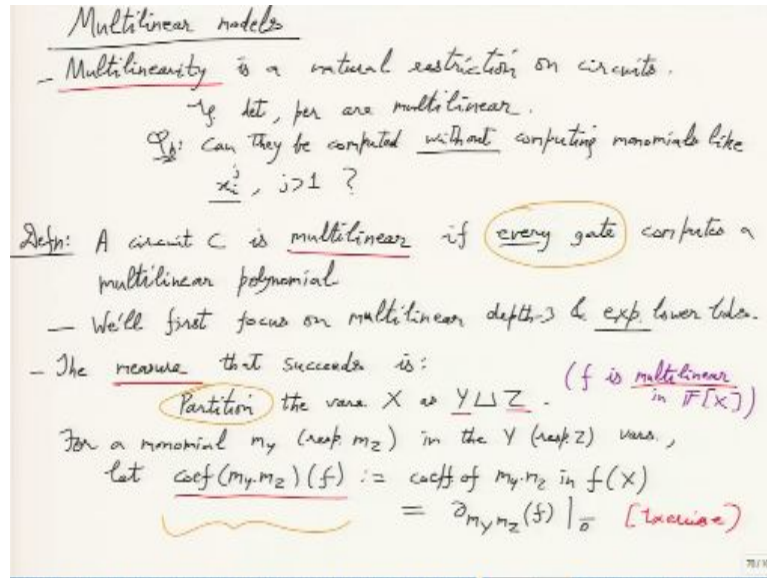 Multilinear models
- Multilinearity is a natural restriction on circuits.
eg det, per are multilinear.
Qn: Can they be computed without computing monomials like
x_i^j, j>1 ?
Defn: A circuit C is multilinear if every gate computes a
multilinear polynomial
- We'll first focus on multilinear depth-3 & exp. lower bds.
- The measure that succeeds is:
(f is multilinear
in F[X])
Partition the vars X as Y⊔Z.
For a monomial m_Y (resp. m_Z) in the Y (resp. Z) vars,
let coef(m_Y.m_Z)(f) := coeff of m_Y.m_Z in f(X)
= ∂_{m_Y m_Z}(f)|_0̄ [Exercise]